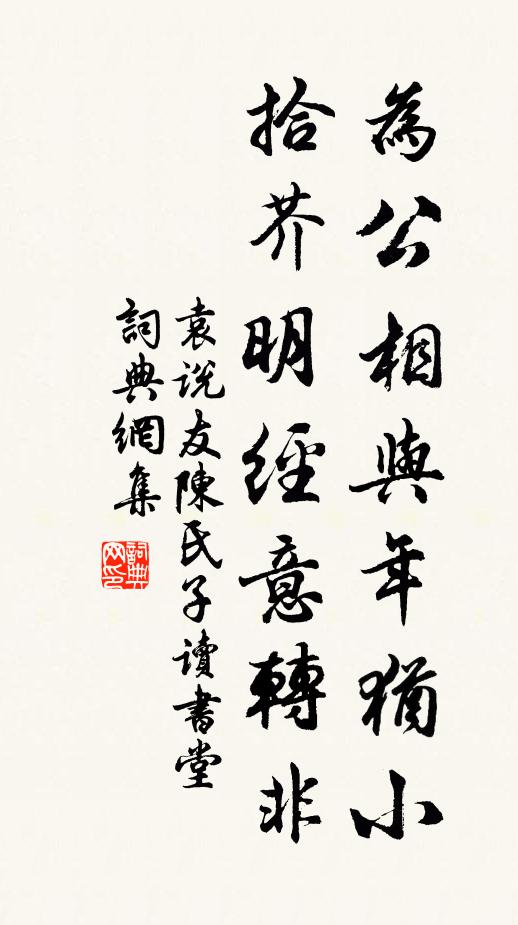 為公相與年猶小
拾芥明經意轉非
袁說友陳氏子讀書堂
詞典網集
詞典網印